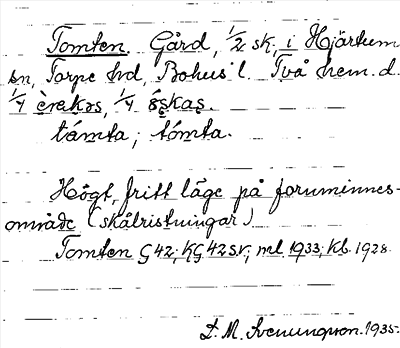 Tomten. Gård, 1/2 sk. i Hjärtum
sn, Torpe hd, Bohus l. Två hem.d.
1/4 èrekəs, 1/4 óskas.
támta; tómta.
Högt, fritt läge på fornminnes-
område (skålristningar)
Tomten G 42; KG 42 sv; ml 1933; Kb. 1928.
D. M. Svenungsson. 1935.